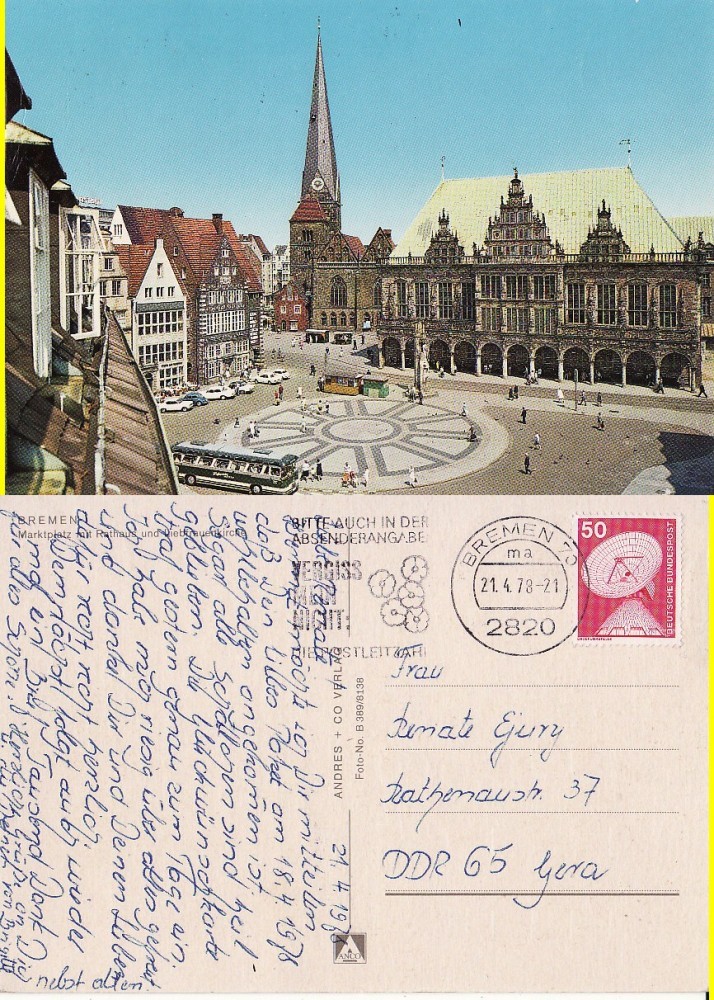 BREMEN
Marktplatz mit Rathaus und Liebfrauenkirche
BITTE AUCH IN DER
ABSENDERANGABE
VERGISS
MEIN
NICHT:
DIE POSTLEITZAHL
BREMEN 70
ma
21.4.78-21
2820
50
DEUTSCHE BUNDESPOST
21.4.1978
Liebe Renate
möchte Dir mitteilen
daß Dein liebes Paket am 18.4.1978
wohlbehalten angekommen ist.
Sogar alle sind heil
geblieben. Die Glückwunschkarte
traf gestern genau zum Tage ein.
Ich hab mich riesig über alles gefreut
und danke Dir und Deinen Lieben
recht recht herzlich.
Der Brief folgt auch wieder
mal ein Brief. Tausend Dank
für alles Schöne. Herzliche Grüße an Dich
nebst allen
von Brigitte
ANDRES + CO VERLAG
Foto-No. B 389/8138
ANCO
Frau
Renate Ejury
Rathenaustr. 37
DDR 65 Gera